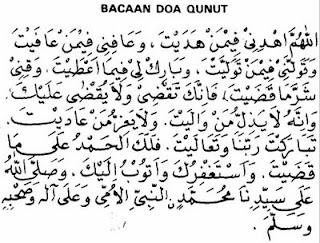 BACAAN DOA QUNUT
اَللّٰهُمَّ اهْدِنِيْ فِيْمَنْ هَدَيْتَ ، وَعَافِنِيْ فِيْمَنْ عَافَيْتَ
وَتَوَلَّنِيْ فِيْمَنْ تَوَلَّيْتَ ، وَبَارِكْ لِيْ فِيْمَا اَعْطَيْتَ . وَقِنِيْ
شَرَّمَا قَضَيْتَ ، فَاِنَّكَ تَقْضِيْ وَلَا يُقْضٰى عَلَيْكَ .
وَاِنَّهُ لَا يَذِلُّ مَنْ وَالَيْتَ . وَلَا يَعِزُّ مَنْ عَادَيْتَ .
تَبَارَكْتَ رَبَّنَا وَتَعَالَيْتَ . فَلَكَ الْحَمْدُ عَلٰى مَا
قَضَيْتَ . وَاَسْتَغْفِرُكَ وَاَتُوْبُ اِلَيْكَ . وَصَلَّى اللهُ
عَلٰى سَيِّدِنَا مُحَمَّدٍ النَّبِيِّ الْاُمِّيِّ وَعَلٰى اٰلِهِ وَصَحْبِهِ
وَسَلَّمَ .